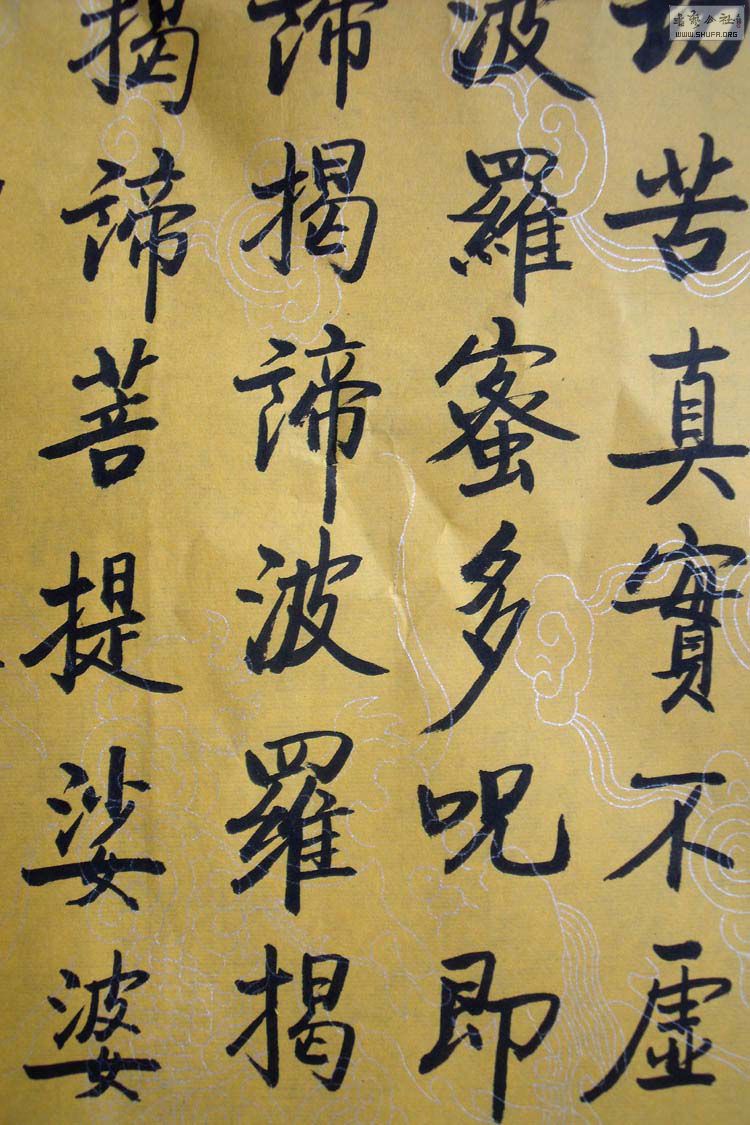 切苦真實不虛
波羅蜜多呪即
諦揭諦波羅揭
揭諦菩提娑婆
WWW.SHUFA.ORG